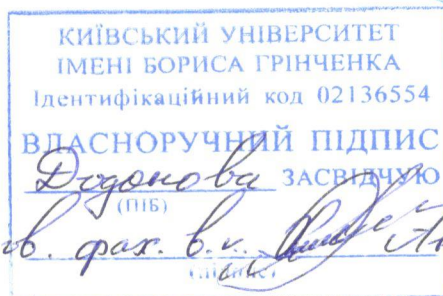 КИЇВСЬКИЙ УНІВЕРСИТЕТ
ІМЕНІ БОРИСА ГРІНЧЕНКА
Ідентифікаційний код 02136554
ВЛАСНОРУЧНИЙ ПІДПИС
Додонова ЗАСВІДЧУЮ
(ПІБ)
фах. в.к.
(підпис)